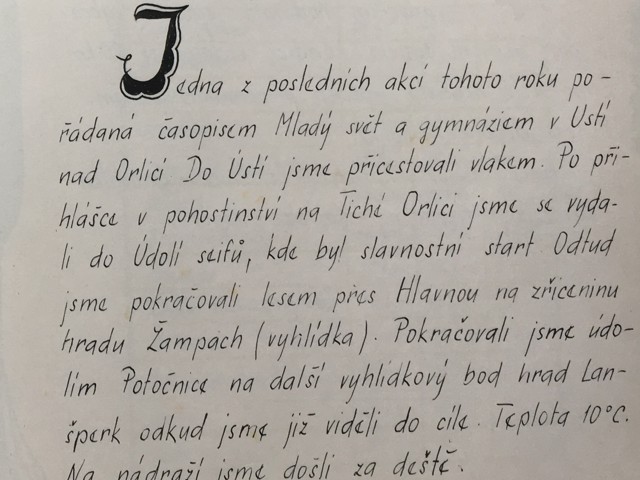 Jedna z posledních akcí tohoto roku po-
řádaná časopisem Mladý svět a gymnáziem v Ústí
nad Orlicí Do Ústí jsme přicestovali vlakem. Po při-
hlášce v pohostinství na Tiché Orlici jsme se vyda-
li do Údolí seifů, kde byl slavnostní start Odtud
jsme pokračovali lesem přes Hlavnou na zříceninu
hradu Žampach (vyhlídka). Pokračovali jsme údo-
lím Potočnice na další vyhlídkový bod hrad Lan-
šperk odkud jsme již viděli do cíle. Teplota 10°C.
Na nádraží jsme došli za deště.